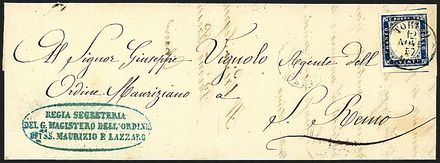 TORI
12
NOV
57
Al Signor Giuseppe Vignolo Agente dell'
Ordine Mauriziano a
S. Remo
REGIA SEGRETERIA
DEL G. MAGISTERO DELL'ORDINE
DE' SS. MAURIZIO E LAZZARO